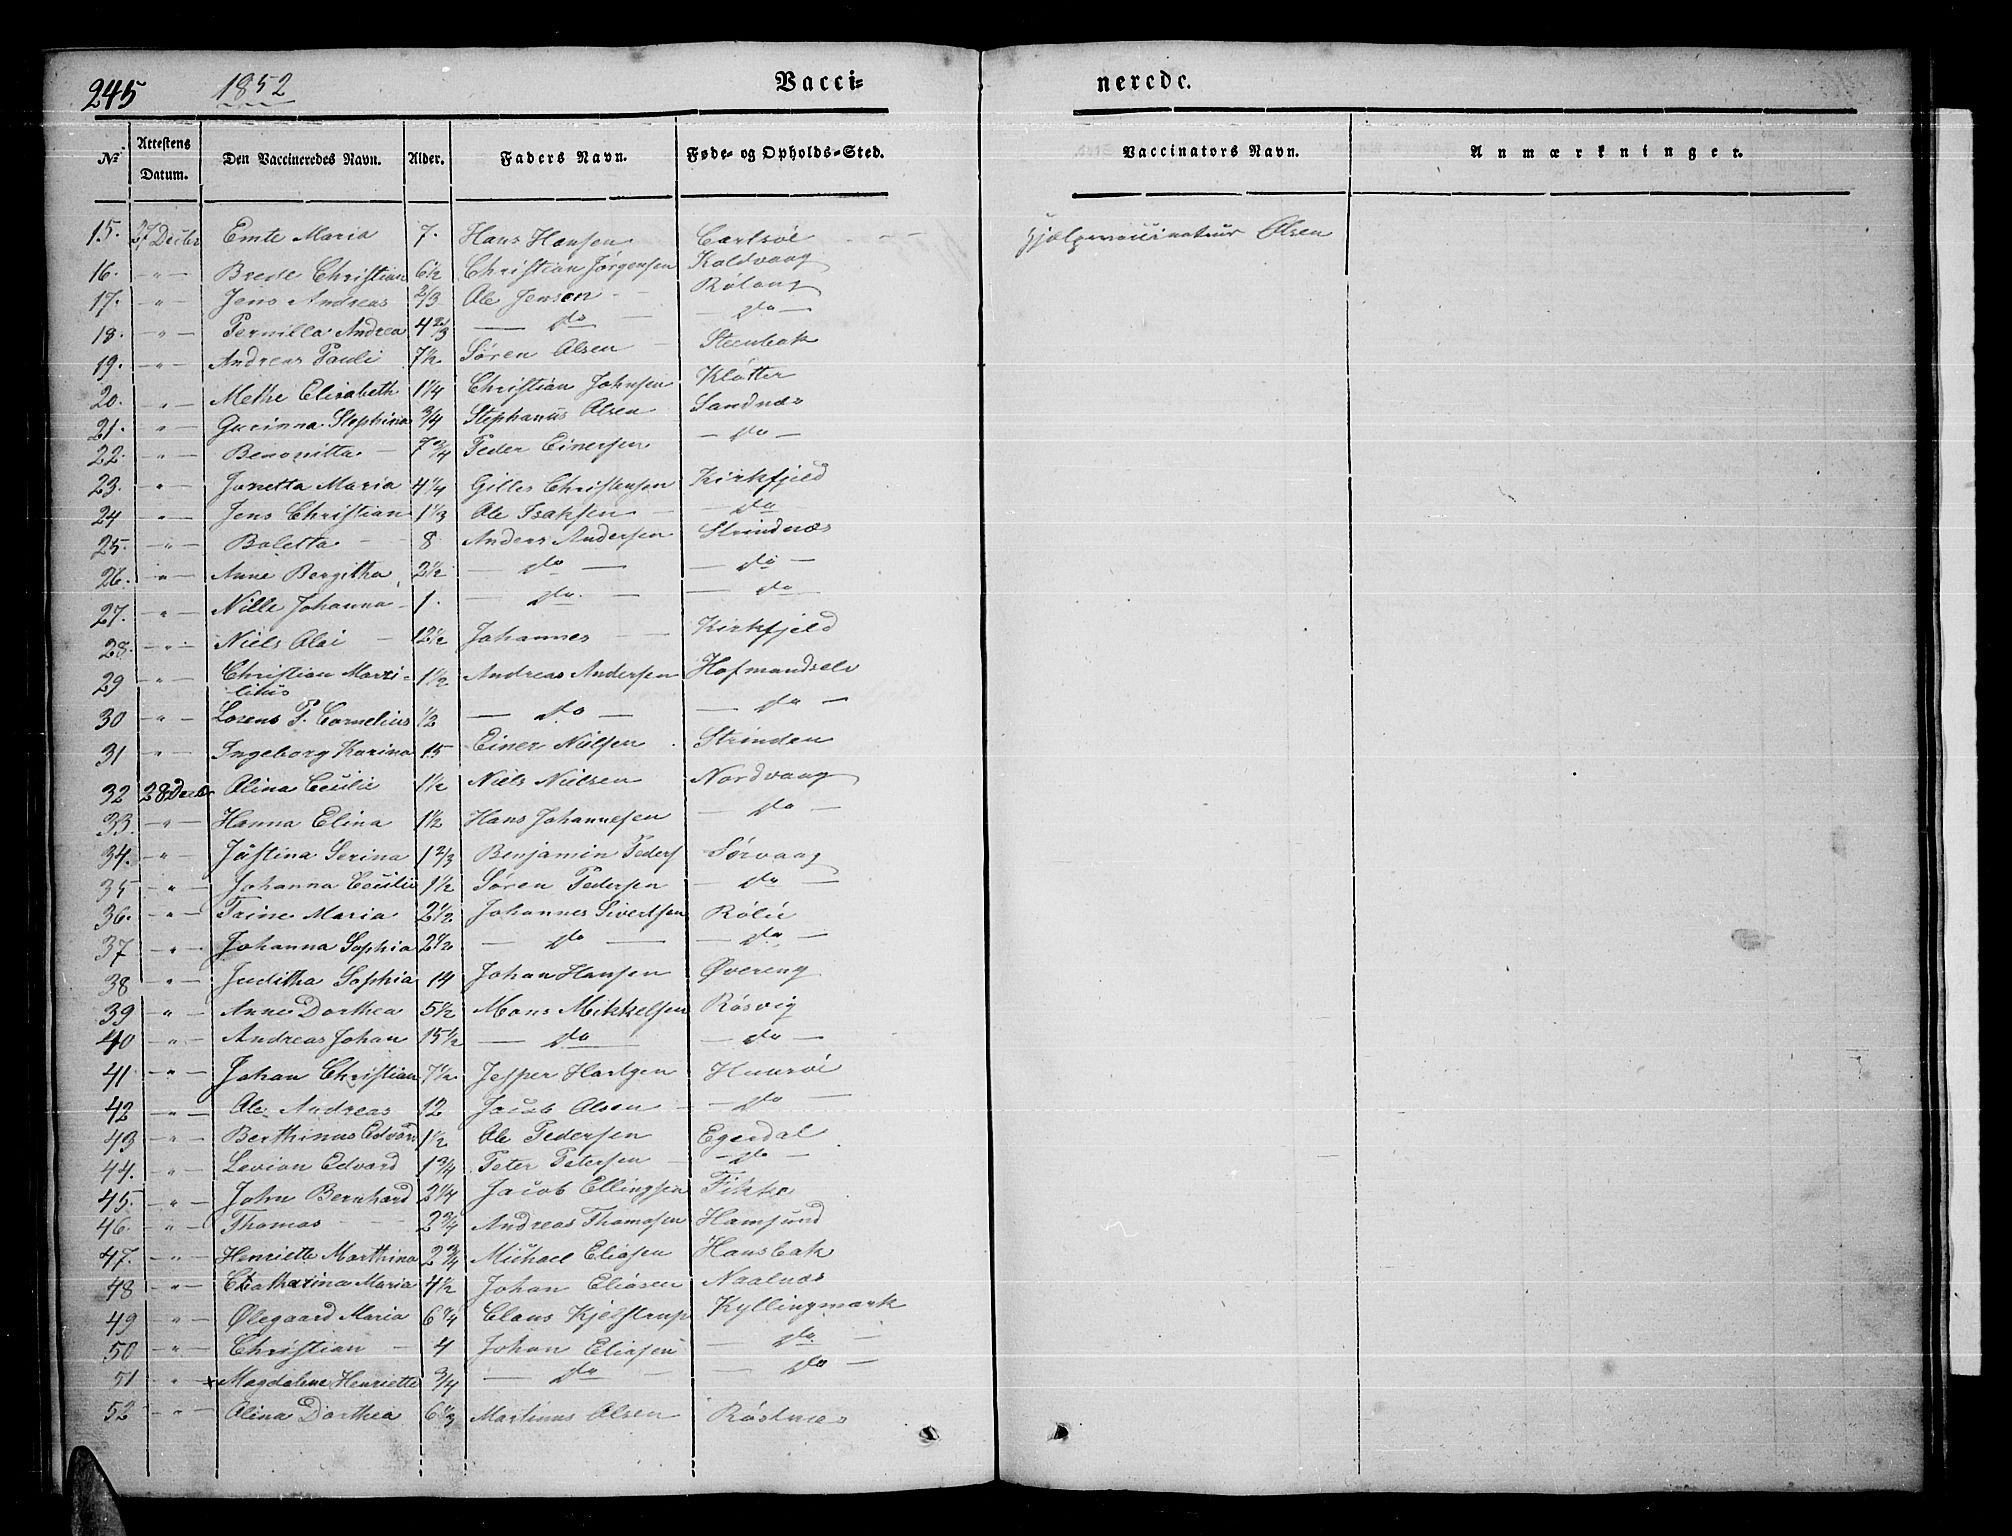 245 1852 Vacci- nerede.
No. Attestens Datum. Den Vaccineredes Navn. Alder. Faders Navn. Føde- og Opholds-Sted. Vaccinators Navn. Anmærkninger.
15. 27 Decber Emte Maria 7. Hans Hansen Carlsöe Hjælpevaccinateur Olsen
16. -"- Brede Christian 6½ Christian Jørgensen Koldvaag
17. -"- Jens Andreas 2/3 Ole Jensen Rölang
18. -"- Pernilla Andrea 4 2/3 — do — — do —
19. -"- Andreas Pauli 7½ Søren Olsen Steenbak
20. -"- Methe Elisabeth 1¼ Christian Johnsen Klötter
21. -"- Gurinna Stephina ¾ Stephanus Olsen Sandnæs
22. -"- Benonitta 7¾ Peder Einersen — do —
23. -"- Jonetta Maria 4¼ Gilles Christensen Kirkfjeld
24 -"- Jens Christian 1⅓ Ole Isaksen — do
25. -"- Boletta 8 Anders Andersen Strindnæs
26. -"- Anne Bergitha 2½ — do — — do —
27. -"- Nille Johanna 1. — do. — — do —
28. -"- Niels Olai 12½ Johannes Kirkfjeld
29 -"- Christian Marsi-
litius 1½ Andreas Andersen Hofmandselv
30 -"- Lorens P. Cornelius ½ — do — — do —
31 -"- Ingeborg Karina 15 Einer Nielsen Strinden
32 28 Decbr Olina Cecilie 1½ Niels Nielsen Nordvaag
33. -"- Hanna Elina 1½ Hans Johannesen — do —
34. -"- Justina Serina 1 2/3 Benjamin Peders Sørvaag
35 -"- Johanna Cecilie 1½ Søren Pedersen — do —
36. -"- Trine Maria 2½ Johannes Sivertsen Rölie
37 -"- Johanna Sophia 2½ — do — — do —
38 -"- Juditha Sophia 14 Johan Hansen Øvereng
39 -"- Anne Dorthea 5½ Mons Mikkelsen Rösvig
40 -"- Andreas Johan 15½ — do — — do —
41 -"- Johan Christian 7½ Jesper Hartgen
42 -"- Ole Andreas 12 Jacob Olsen — do —
43 -"- Berthinus Edvard 1½ Ole Pedersen Egerdal
44. -"- Edvard 1¾ Peter Petersen — do —
45. -"- John Bernhard 2¼ Jacob Ellingsen Fikke
46. -"- Thomas 2¾ Andreas Thomasen Hamsund
47. -"- Henriette Marthina 2¾ Michael Eliasen Hansbak
48 -"- Chatharina Maria 4½ Johan Eliasen Naalnæs
49 -"- Ølegaard Maria 6¼ Claus Kjelstrup Kyllingmark
50 -"- Christian 4 Johan Eliasen — do —
51 -"- x Magdalene Henriette ¾ — do — — do —
52 -"- Olina Dorthea 6⅓ Martinus Olsen Röstnæs